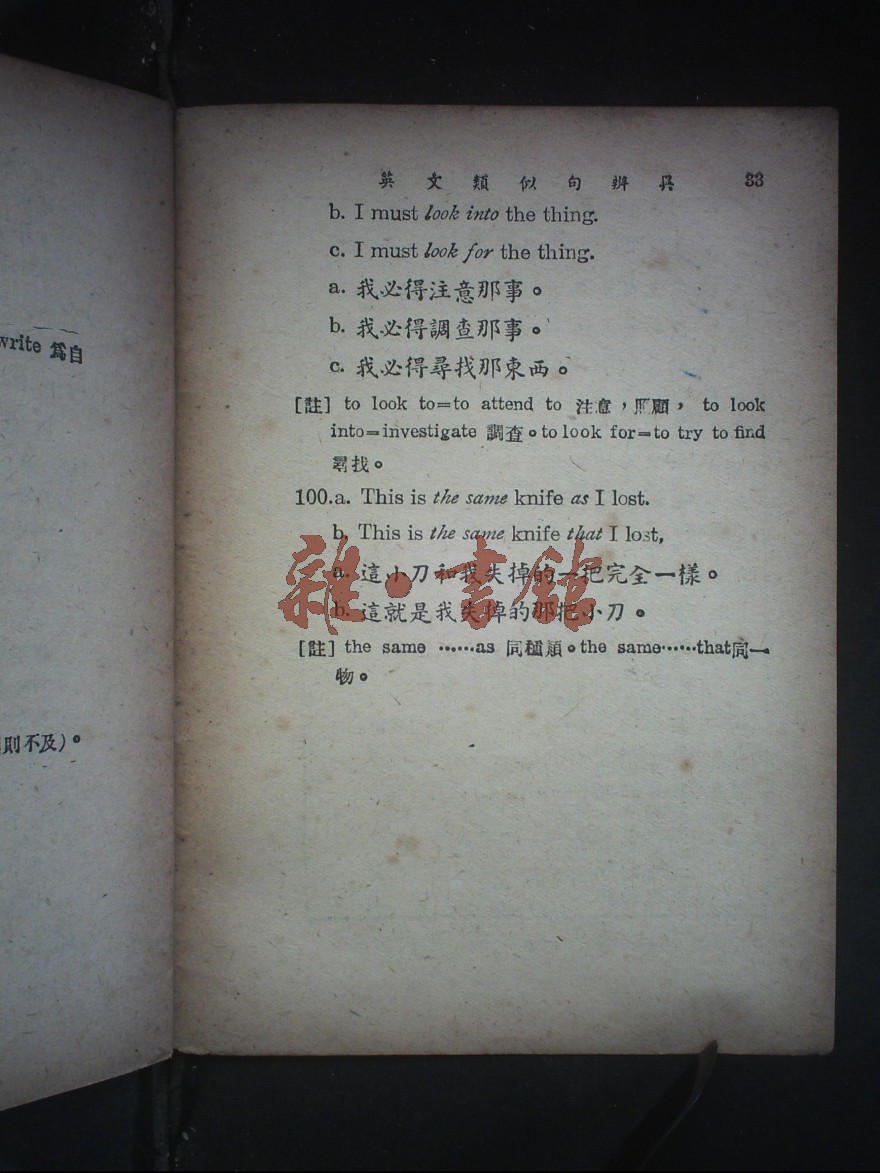 write 爲自
則不及)。
英文類似句辨異 33
b. I must look into the thing.
c. I must look for the thing.
a. 我必得注意那事。
b. 我必得調查那事。
c. 我必得尋找那東西。
[註] to look to=to attend to 注意，照顧， to look
into=investigate 調查。to look for=to try to find
尋找。
100.a. This is the same knife as I lost.
b. This is the same knife that I lost,
a. 這小刀和我失掉的一把完全一樣。
b. 這就是我失掉的那把小刀。
[註] the same ……as 同種類。the same……that同一
物。
雜·書館